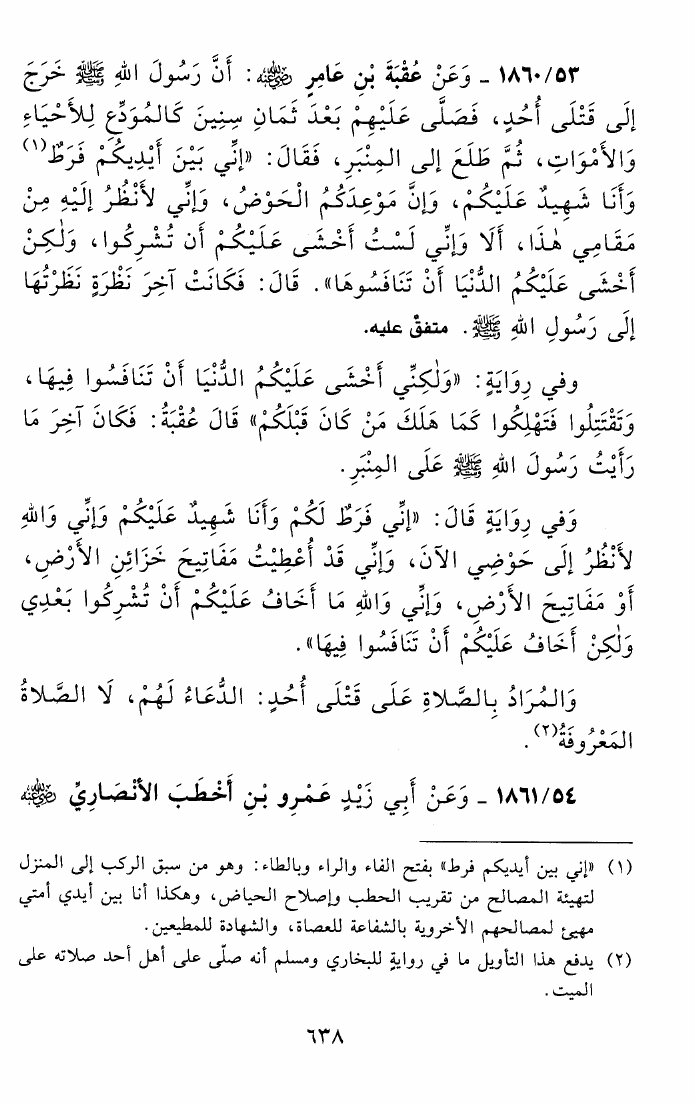 ١٨٦٠/٥٣ ـ وَعَنْ عُقْبَةَ بْنِ عَامِرٍ رضي الله عنه : أَنَّ رَسُولَ اللهِ ﷺ خَرَجَ
إِلَى قَتْلَى أُحُدٍ، فَصَلَّى عَلَيْهِمْ بَعْدَ ثَمَانِ سِنِينَ كَالمُوَدِّعِ لِلأَحْيَاءِ
وَالأَمْوَاتِ، ثُمَّ طَلَعَ إلى المِنْبَرِ، فَقَالَ: «إِنِّي بَيْنَ أَيْدِيكُمْ فَرَطٌ(١)
وَأَنَا شَهِيدٌ عَلَيْكُمْ، وَإِنَّ مَوْعِدَكُمُ الْحَوْضُ، وَإِنِّي لَأَنْظُرُ إِلَيْهِ مِنْ
مَقَامِي هٰذَا، أَلَا وَإِنِّي لَسْتُ أَخْشَى عَلَيْكُمْ أَن تُشْرِكُوا، وَلٰكِنْ
أَخْشَى عَلَيْكُمُ الدُّنْيَا أَنْ تَنَافَسُوهَا». قَالَ: فَكَانَتْ آخِرَ نَظْرَةٍ نَظَرْتُهَا
إِلَى رَسُولِ اللهِ ﷺ. متفقٌ عليه.
وفي رِوَايَةٍ: «وَلٰكِنِّي أَخْشَى عَلَيْكُمُ الدُّنْيَا أَنْ تَنَافَسُوا فِيهَا،
وَتَقْتَتِلُوا فَتَهْلِكُوا كَمَا هَلَكَ مَنْ كَانَ قَبْلَكُمْ» قَالَ عُقْبَةُ: فَكَانَ آخِرَ مَا
رَأَيْتُ رَسُولَ اللهِ ﷺ عَلَى المِنْبَرِ.
وَفي رِوَايَةٍ قَالَ: «إِنِّي فَرَطٌ لَكُمْ وَأَنَا شَهِيدٌ عَلَيْكُمْ وَإِنِّي وَاللهِ
لأَنْظُرُ إِلَى حَوْضِي الآنَ، وَإِنِّي قَدْ أُعْطِيْتُ مَفَاتِيحَ خَزَائِنِ الأَرْضِ،
أَوْ مَفَاتِيحَ الأَرْضِ، وَإِنِّي وَاللهِ مَا أَخَافُ عَلَيْكُمْ أَنْ تُشْرِكُوا بَعْدِي
وَلٰكِنْ أَخَافُ عَلَيْكُمْ أَنْ تَنَافَسُوا فِيهَا».
وَالمُرَادُ بِالصَّلاةِ عَلَى قَتْلَى أُحُدٍ: الدُّعَاءُ لَهُمْ، لَا الصَّلاةُ
المَعْرُوفَةُ(٢).
١٨٦١/٥٤ ـ وَعَنْ أَبِي زَيْدٍ عَمْرِو بْنِ أَخْطَبَ الأَنْصَارِيِّ رضي الله عنه
(١) «إني بين أيديكم فرط» بفتح الفاء والراء وبالطاء: وهو من سبق الركب إلى المنزل
لتهيئة المصالح من تقريب الحطب وإصلاح الحياض، وهكذا أنا بين أيدي أمتي
مهيئ لمصالحهم الأخروية بالشفاعة للعصاة، والشهادة للمطيعين.
(٢) يدفع هذا التأويل ما في روايةٍ للبخاري ومسلم أنه صلّى على أهل أحد صلاته على
الميت.
٦٣٨